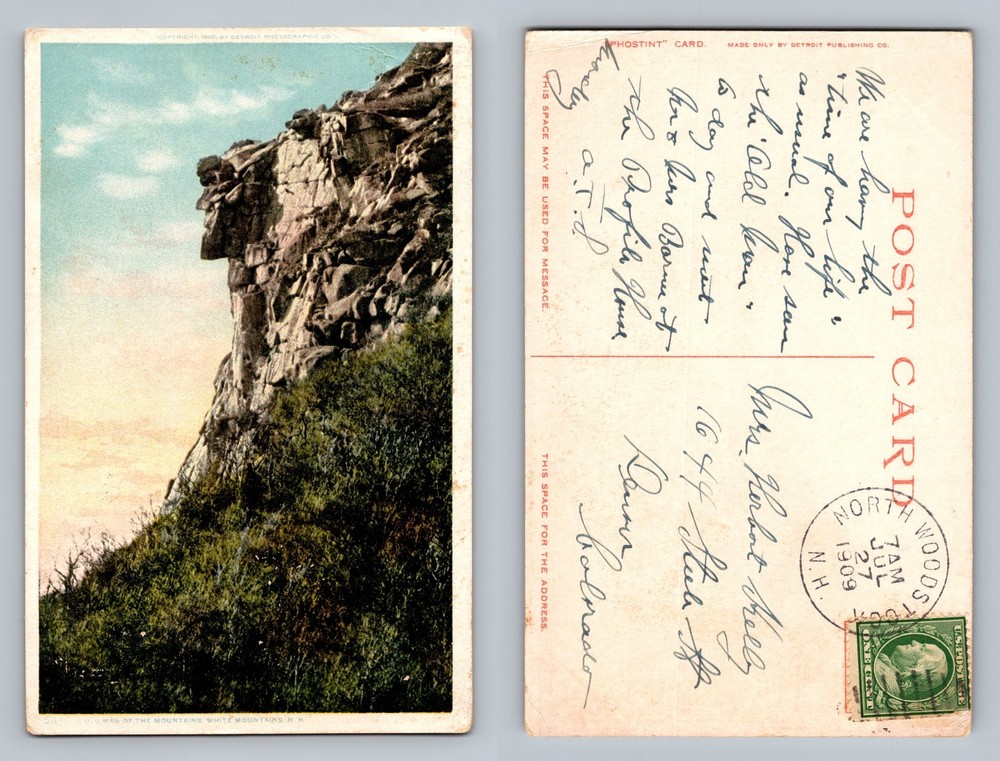 COPYRIGHT, 1905, BY DETROIT PHOTOGRAPHIC CO.
OLD MAN OF THE MOUNTAINS, WHITE MOUNTAINS, N. H.
"PHOSTINT" CARD. MADE ONLY BY DETROIT PUBLISHING CO.
POST CARD
THIS SPACE MAY BE USED FOR MESSAGE.
THIS SPACE FOR THE ADDRESS.
We are having the
"time of our life"
as usual. Have seen
the "Old Man"
to day and met
Mr & Mrs Barnes at
the Profile House
Mrs. Herbert Kelly
1644 Steele St
Denver
Colorado
NORTH WOODSTOCK
7 AM
JUL
27
1909
N.H.
U.S. POSTAGE
ONE CENT